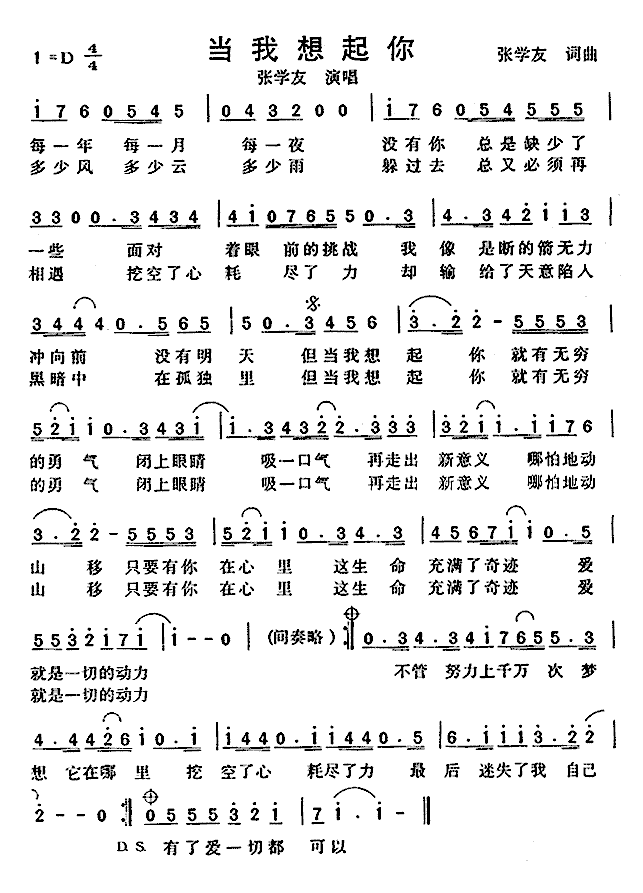 当我想起你
1=D 4/4
张学友 词曲
张学友 演唱
i 7 6 0 5 4 5 | 0 4 3 2 0 0 | i 7 6 0 5 4 5 5 5
每一年 每一月 每一夜 没有你 总是缺少了
多少风 多少云 多少雨 躲过去 总又必须再
3 3 0 0 . 3 4 3 4 | 4 i 0 7 6 5 5 0 . 3 | 4 . 3 4 2 i i 3
一些 面对 着眼 前的挑战 我 像 是断的箭无力
相遇 挖空了心 耗 尽了 力 却 输 给了天意陷人
3 4 4 4 0 . 5 6 5 | 5 0 . 3 4 5 6 | 3 . 2 2 - 5 5 5 3
冲向前 没有明 天 但当我想 起 你 就有无穷
黑暗中 在孤独 里 但当我想 起 你 就有无穷
5 2 i i 0 . 3 4 3 i | i . 3 4 3 2 2 . 3 3 3 | 5 2 2 i . i i 7 6
的勇 气 闭上眼睛 吸一口气 再走出 新意义 哪怕地动
的勇 气 闭上眼睛 吸一口气 再走出 新意义 哪怕地动
3 . 2 2 - 5 5 5 3 | 5 2 i i 0 . 3 4 . 3 | 4 5 6 7 i i 0 . 5
山 移 只要有你 在心 里 这生 命 充满了奇迹 爱
山 移 只要有你 在心 里 这生 命 充满了奇迹 爱
5 5 3 2 i 7 i | i - - 0 | (间奏略) :‖ 0 . 3 4 . 3 4 i 7 6 5 5 . 3
就是一切的动力 不管 努力上千万 次 梦
就是一切的动力
4 . 4 4 2 6 i 0 . i | i 4 4 0 . i i 4 4 0 . i | 6 . i i i 3 . 2 2
想 它在哪 里 挖 空了心 耗尽了力 最 后 迷失了我 自己
2 - - 0 :‖ 0 5 5 5 3 2 i | 7 i . i - ‖
D.S. 有了爱一切都 可以